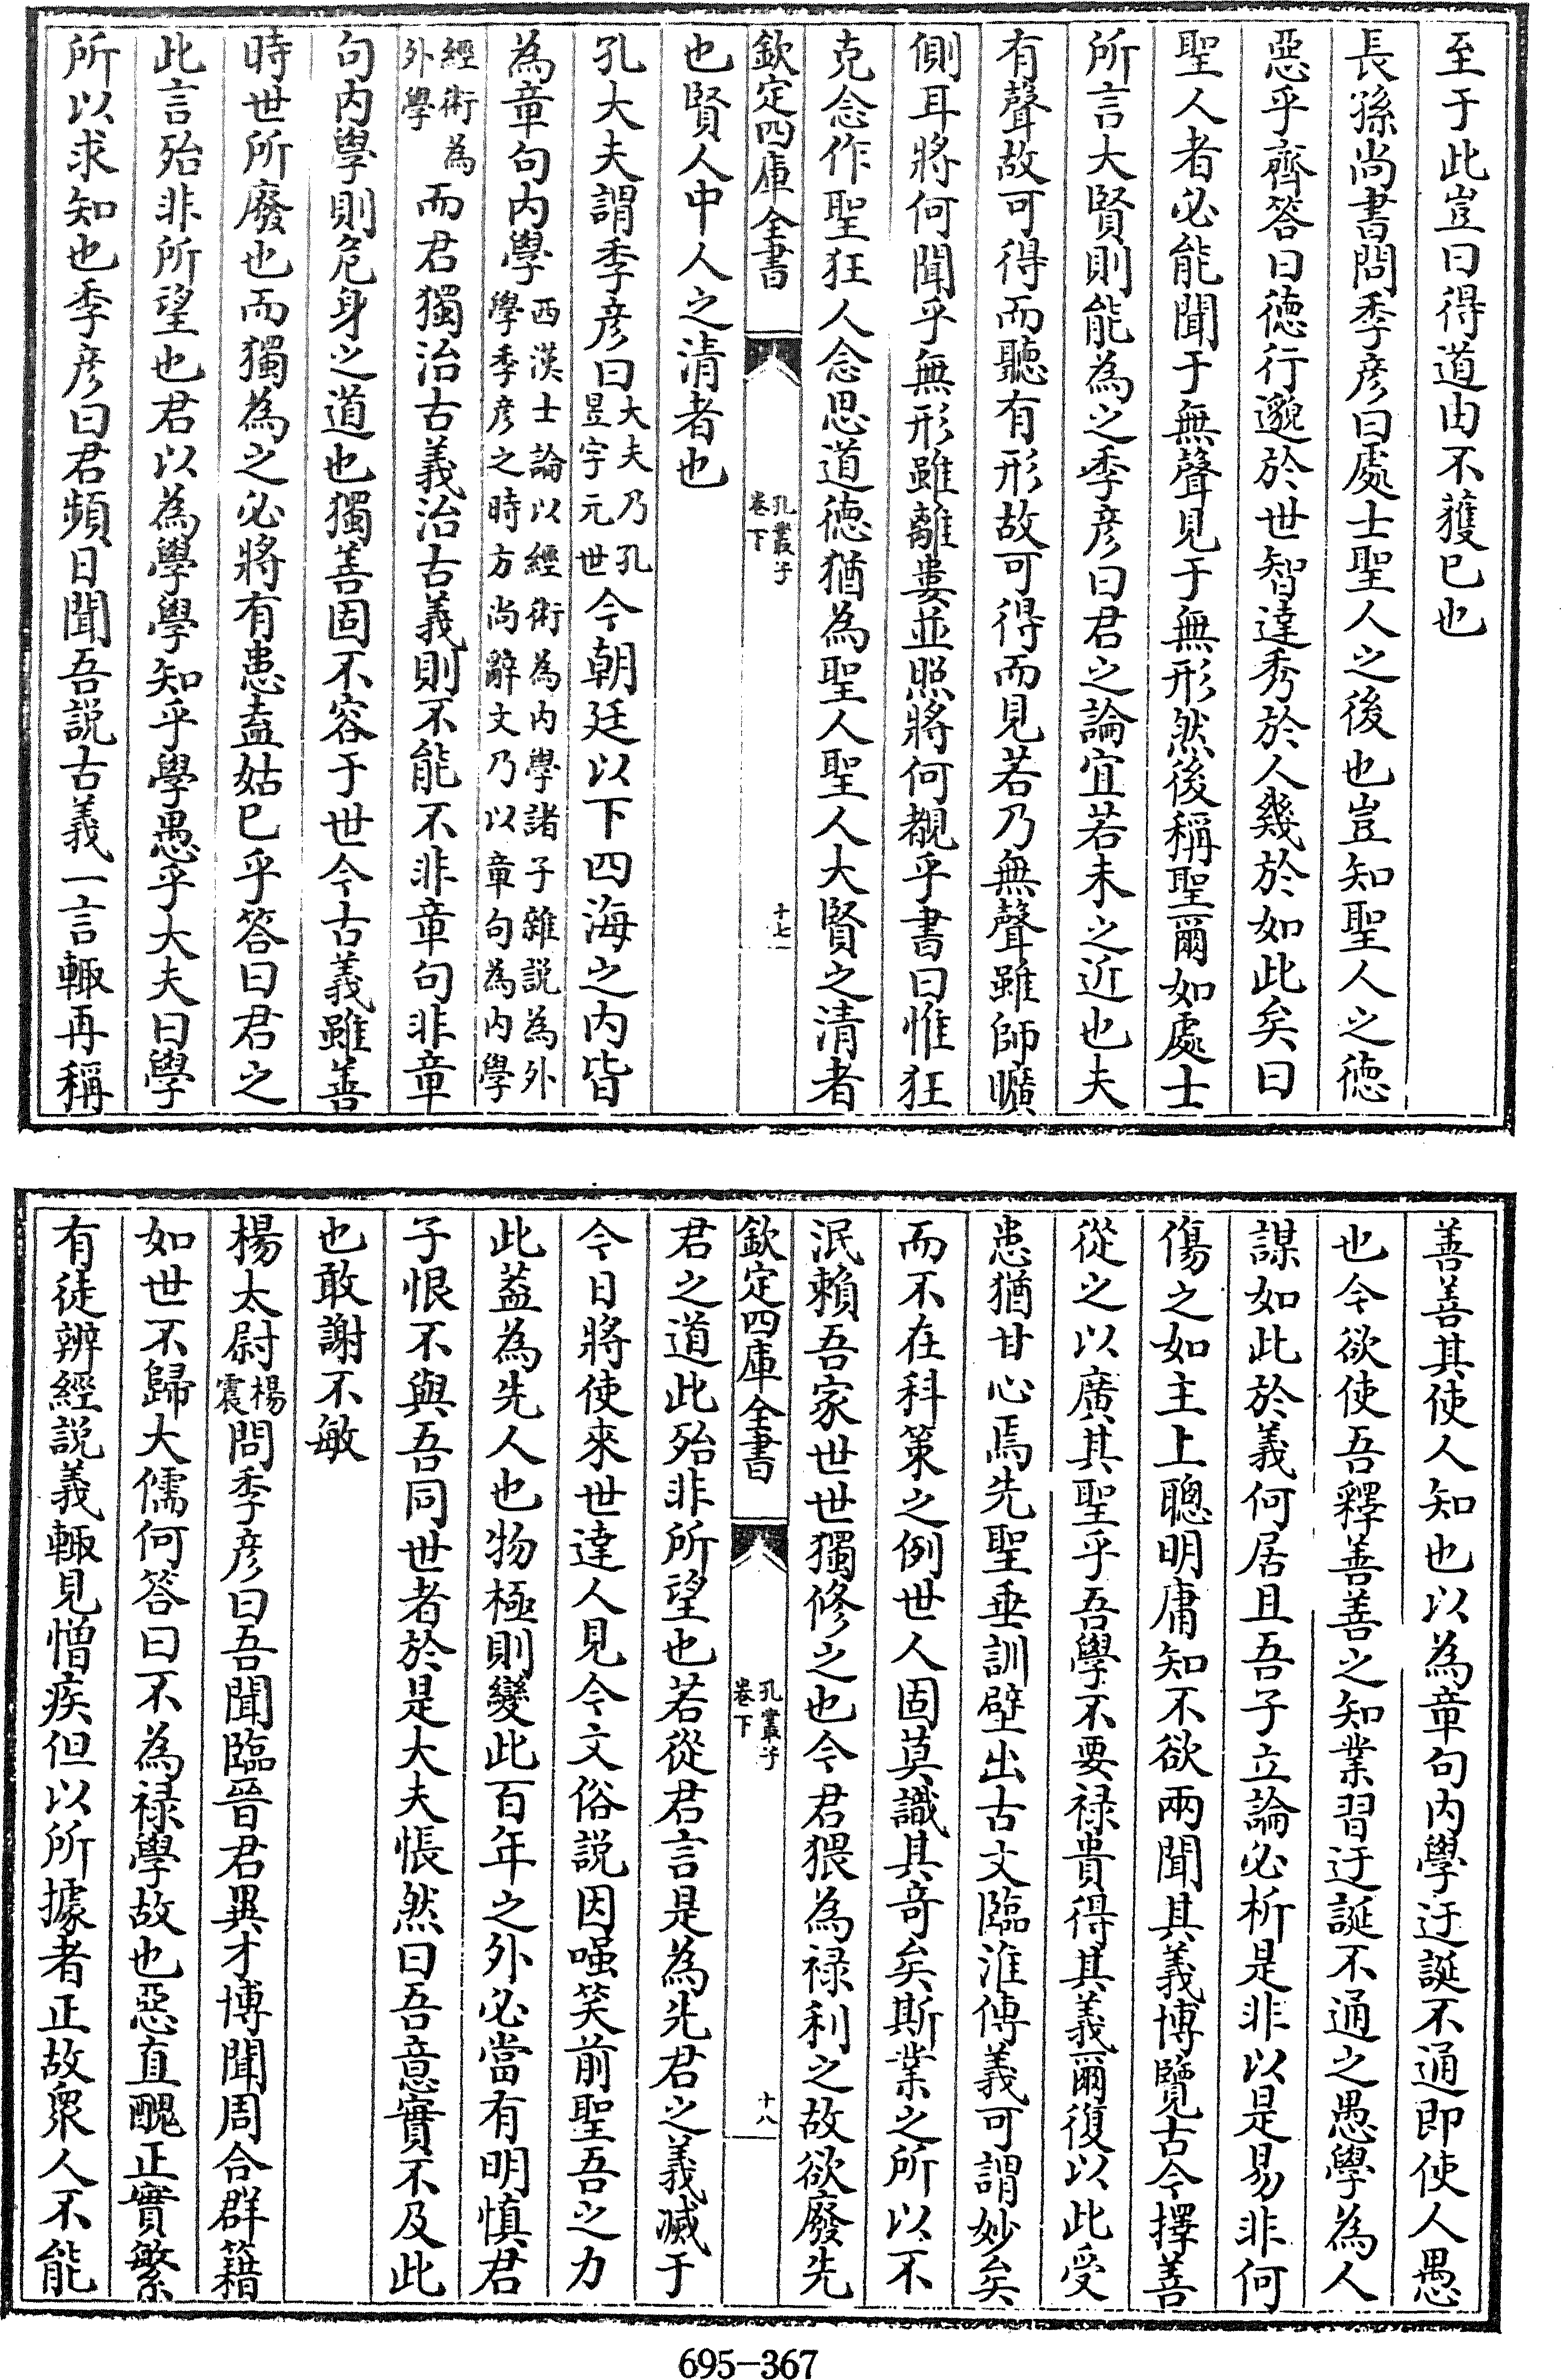 至于此豈曰得道由不獲已也
長孫尚書問季彦曰處士聖人之後也豈知聖人之徳
惡乎齊答曰徳行邈於世智達秀於人幾於如此矣曰
聖人者必能聞于無聲見于無形然後稱聖爾如處士
所言大賢則能為之季彦曰君之論宜若未之近也夫
有聲故可得而聽有形故可得而見若乃無聲雖師曠
側耳將何聞乎無形雖離婁並照將何覩乎書曰惟狂
克念作聖狂人念思道徳猶為聖人聖人大賢之清者
欽定四庫全書
孔叢子
卷下
十七
也賢人中人之清者也
孔大夫謂季彦曰大夫乃孔昱字元世今朝廷以下四海之内皆
為章句内學西漢士論以經術為内學諸子雜説為外學季彦之時方尚辭文乃以章句為内學
經術為外學而君獨治古義治古義則不能不非章句非章
句内學則危身之道也獨善固不容于世今古義雖善
時世所廢也而獨為之必將有患盍姑已乎答曰君之
此言殆非所望也君以為學學知乎學愚乎大夫曰學
所以求知也季彦曰君頻日聞吾説古義一言輙再稱
善善其使人知也以為章句内學迂誕不通即使人愚
也今欲使吾釋善善之知業習迂誕不通之愚學為人
謀如此於義何居且吾子立論必析是非以是易非何
傷之如主上聰明庸知不欲兩聞其義博覽古今擇善
從之以廣其聖乎吾學不要禄貴得其義爾復以此受
患猶甘心焉先聖垂訓壁出古文臨淮傳義可謂妙矣
而不在科策之例世人固莫識其奇矣斯業之所以不
泯賴吾家世世獨修之也今君猥為禄利之故欲廢先
欽定四庫全書
孔叢子
卷下
十八
君之道此殆非所望也若從君言是為先君之義滅于
今日將使來世達人見今文俗説因嗤笑前聖吾之力
此葢為先人也物極則變此百年之外必當有明慎君
子恨不與吾同世者於是大夫悵然曰吾意實不及此
也敢謝不敏
楊太尉楊震問季彦曰吾聞臨晉君異才博聞周合群籍
如世不歸大儒何答曰不為禄學故也惡直醜正實繁
有徒辨經説義輙見憎疾但以所據者正故衆人不能
695-367